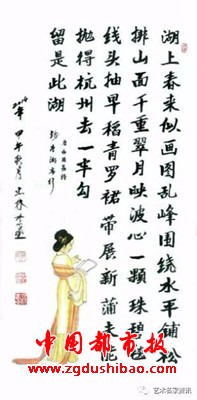 湖上春来似画图乱峰围绕水平铺松
排山面千重翠月映波心一颗珠碧毯
线头抽早稻青罗裙带展新蒲未能
抛得杭州去一半勾
留是此湖
唐白居易诗
甲午秋月
中国都市报
www.zgdushibao.com
艺术名家资讯